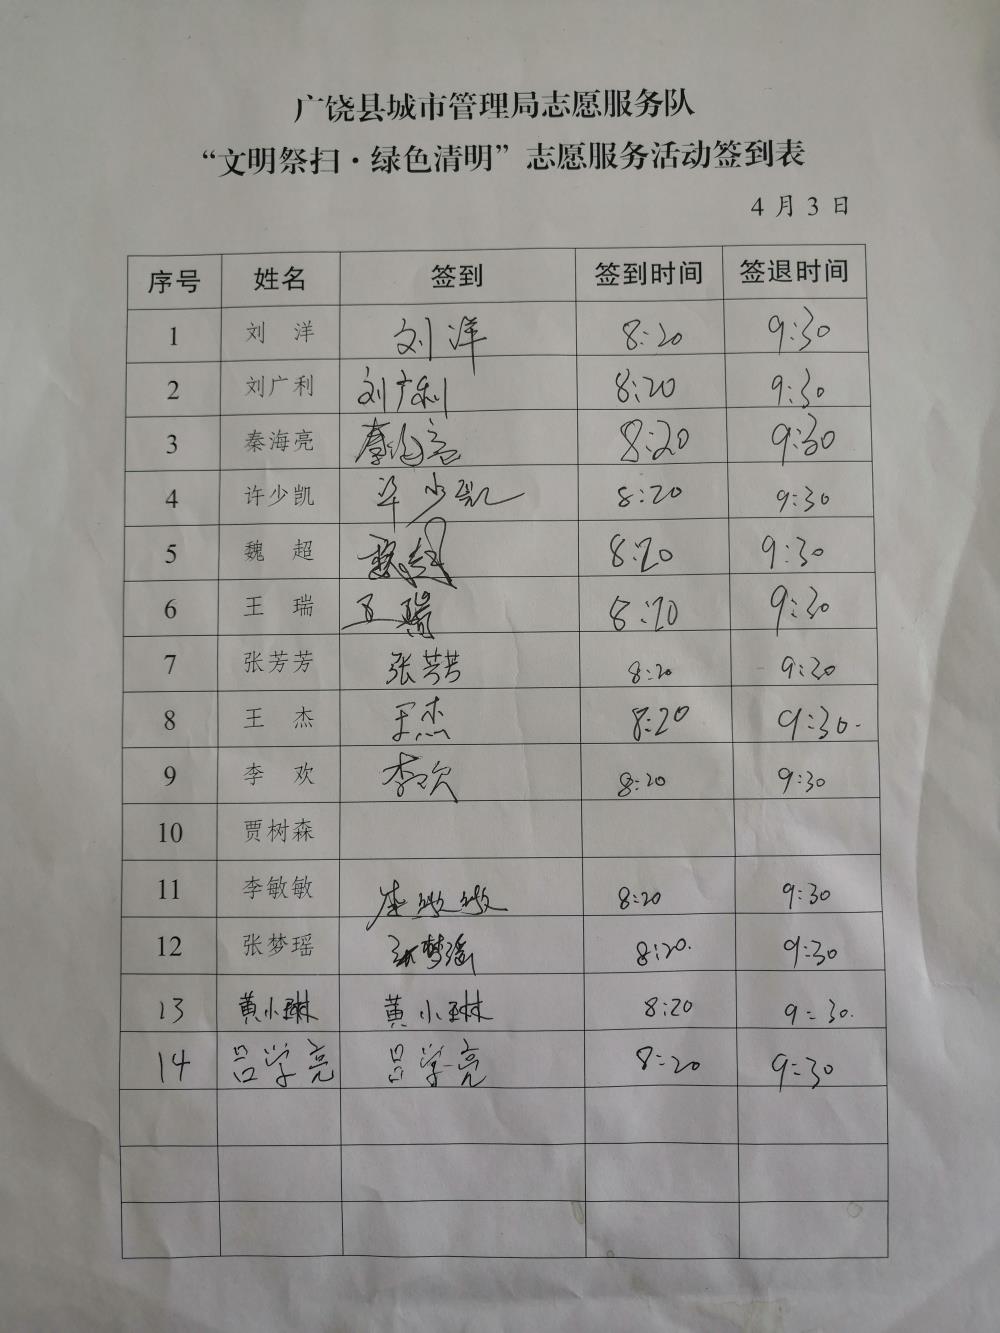 广饶县城市管理局志愿服务队
“文明祭扫·绿色清明”志愿服务活动签到表
4月3日
序号 姓名 签到 签到时间 签退时间
1 刘洋 刘洋 8:20 9:30
2 刘广利 刘广利 8:20 9:30
3 秦海亮 秦海亮 8:20 9:30
4 许少凯 许少凯 8:20 9:30
5 魏超 魏超 8:20 9:30
6 王瑞 王瑞 8:20 9:30
7 张芳芳 张芳芳 8:20 9:30
8 王杰 王杰 8:20 9:30.
9 李欢 李欢 8:20 9:30
10 贾树森
11 李敏敏 李敏敏 8:20 9:30
12 张梦瑶 张梦瑶 8:20. 9:30
13 黄小琳 黄小琳 8:20 9:30.
14 吕学亮 吕学亮 8:20 9:30